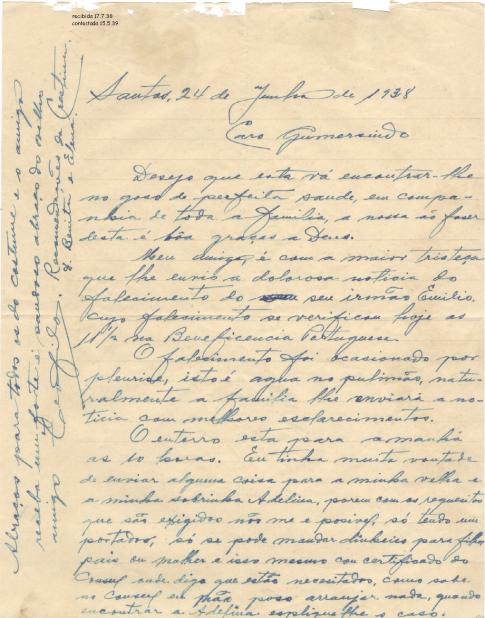 recibida 17.7.38
contestada 15.5.39
Santos, 24 de Junho de 1938
Caro Gumersindo
Desejo que esta vá encontrar-lhe
no goso de perfeita saude, em compa-
nhia de toda a familia, a nossa ao faser
desta é bôa graças a Deus.
Meu amigo, é com a maior tristeza
que lhe envio a dolorosa noticia do
falecimento do seu irmão Emilio
cujo falecimento se verificou hoje as
11 1/2 na Beneficencia Portuguesa.
O falecimento foi ocasionado por
pleurisa, isto é agua no pulmão, natu-
ralmente a familia lhe enviará a no-
ticia com melhores esclarecimentos.
O enterro esta para amanhã
as 10 horas. Eu tinha muita vontade
de enviar alguma coisa para a minha velha e
a minha sobrinha Adelina, porem com os requesitos
que são exigidos não me e posivel, só tendo um
portador, só se pode mandar dinheiro para filhos
pais ou mulher e isso mesmo com certificado do
Consul onde diga que estão necesitados, como sabe
no Consul eu não poso arranjar nada, quando
encontrar a Adelina esplique lhe o caso.
Abraços para todos os do costume e o amigo
receba um forte é saudoso abraço do velho
amigo
Recomendações da
d. Benita e Elena